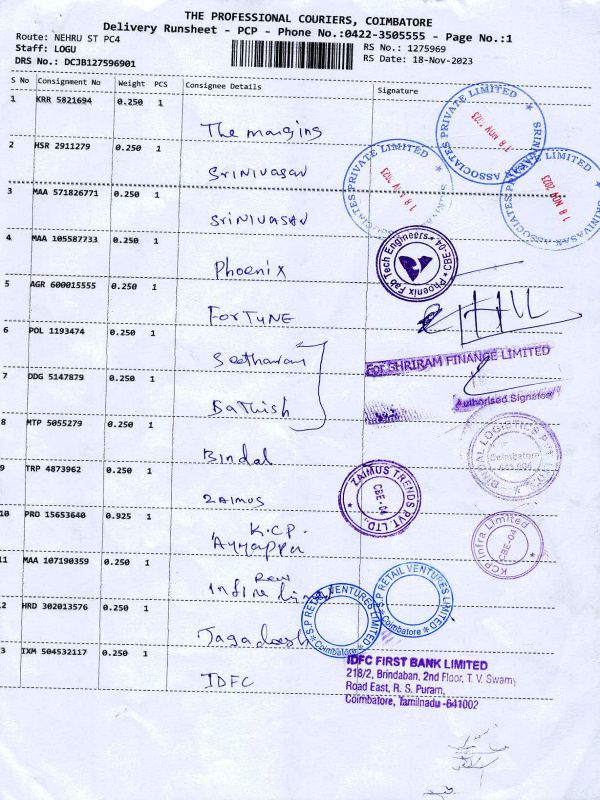 THE PROFESSIONAL COURIERS, COIMBATORE
Delivery Runsheet - PCP - Phone No.:0422-3505555 - Page No.:1
Route: NEHRU ST PC4
RS No.: 1275969
Staff: LOGU
RS Date: 18-Nov-2023
DRS No.: DCJB127596901
S No Consignment No Weight PCS Consignee Details Signature
1 KRR 5821694 0.250 1
The margins
2 HSR 2911279 0.250 1
SRINIVASAN
3 MAA 571826771 0.250 1
SRINIVASAN
4 MAA 105587733 0.250 1
Phoenix
5 AGR 600015555 0.250 1
FORTUNE
6 POL 1193474 0.250 1
Seetharam
7 DDG 5147879 0.250 1
Bathish
8 MTP 5055279 0.250 1
Bindal
9 TRP 4873962 0.250 1
ZAIMUS
10 PRO 15653640 0.925 1
K.C.P.
Ayyappa
11 MAA 107190359 0.250 1
2 HRD 302013576 0.250 1
Jagadeesh
3 IXM 504532117 0.250 1
IDFC
SRINIVASAN ASSOCIATES PRIVATE LIMITED
18 NOV 2023
ASSOCIATES PRIVATE LIMITED
18 NOV 2023
SRINIVASAN ASSOCIATES PRIVATE LIMITED
18 NOV 2023
Phoenix FabTech Engineers CBE-04
For SHRIRAM FINANCE LIMITED
Authorised Signatory
BINDAL LOGISTICS PVT LTD
Coimbatore
641 004
ZAIMUS TRENDS PVT. LTD.
CBE-04
KCP Infra Limited
CBE-04
S.P RETAIL VENTURES LIMITED
Coimbatore
S.P RETAIL VENTURES LIMITED
Coimbatore
IDFC FIRST BANK LIMITED
218/2, Brindaban, 2nd Floor, T. V. Swamy
Road East, R. S. Puram,
Coimbatore, Tamilnadu -641002